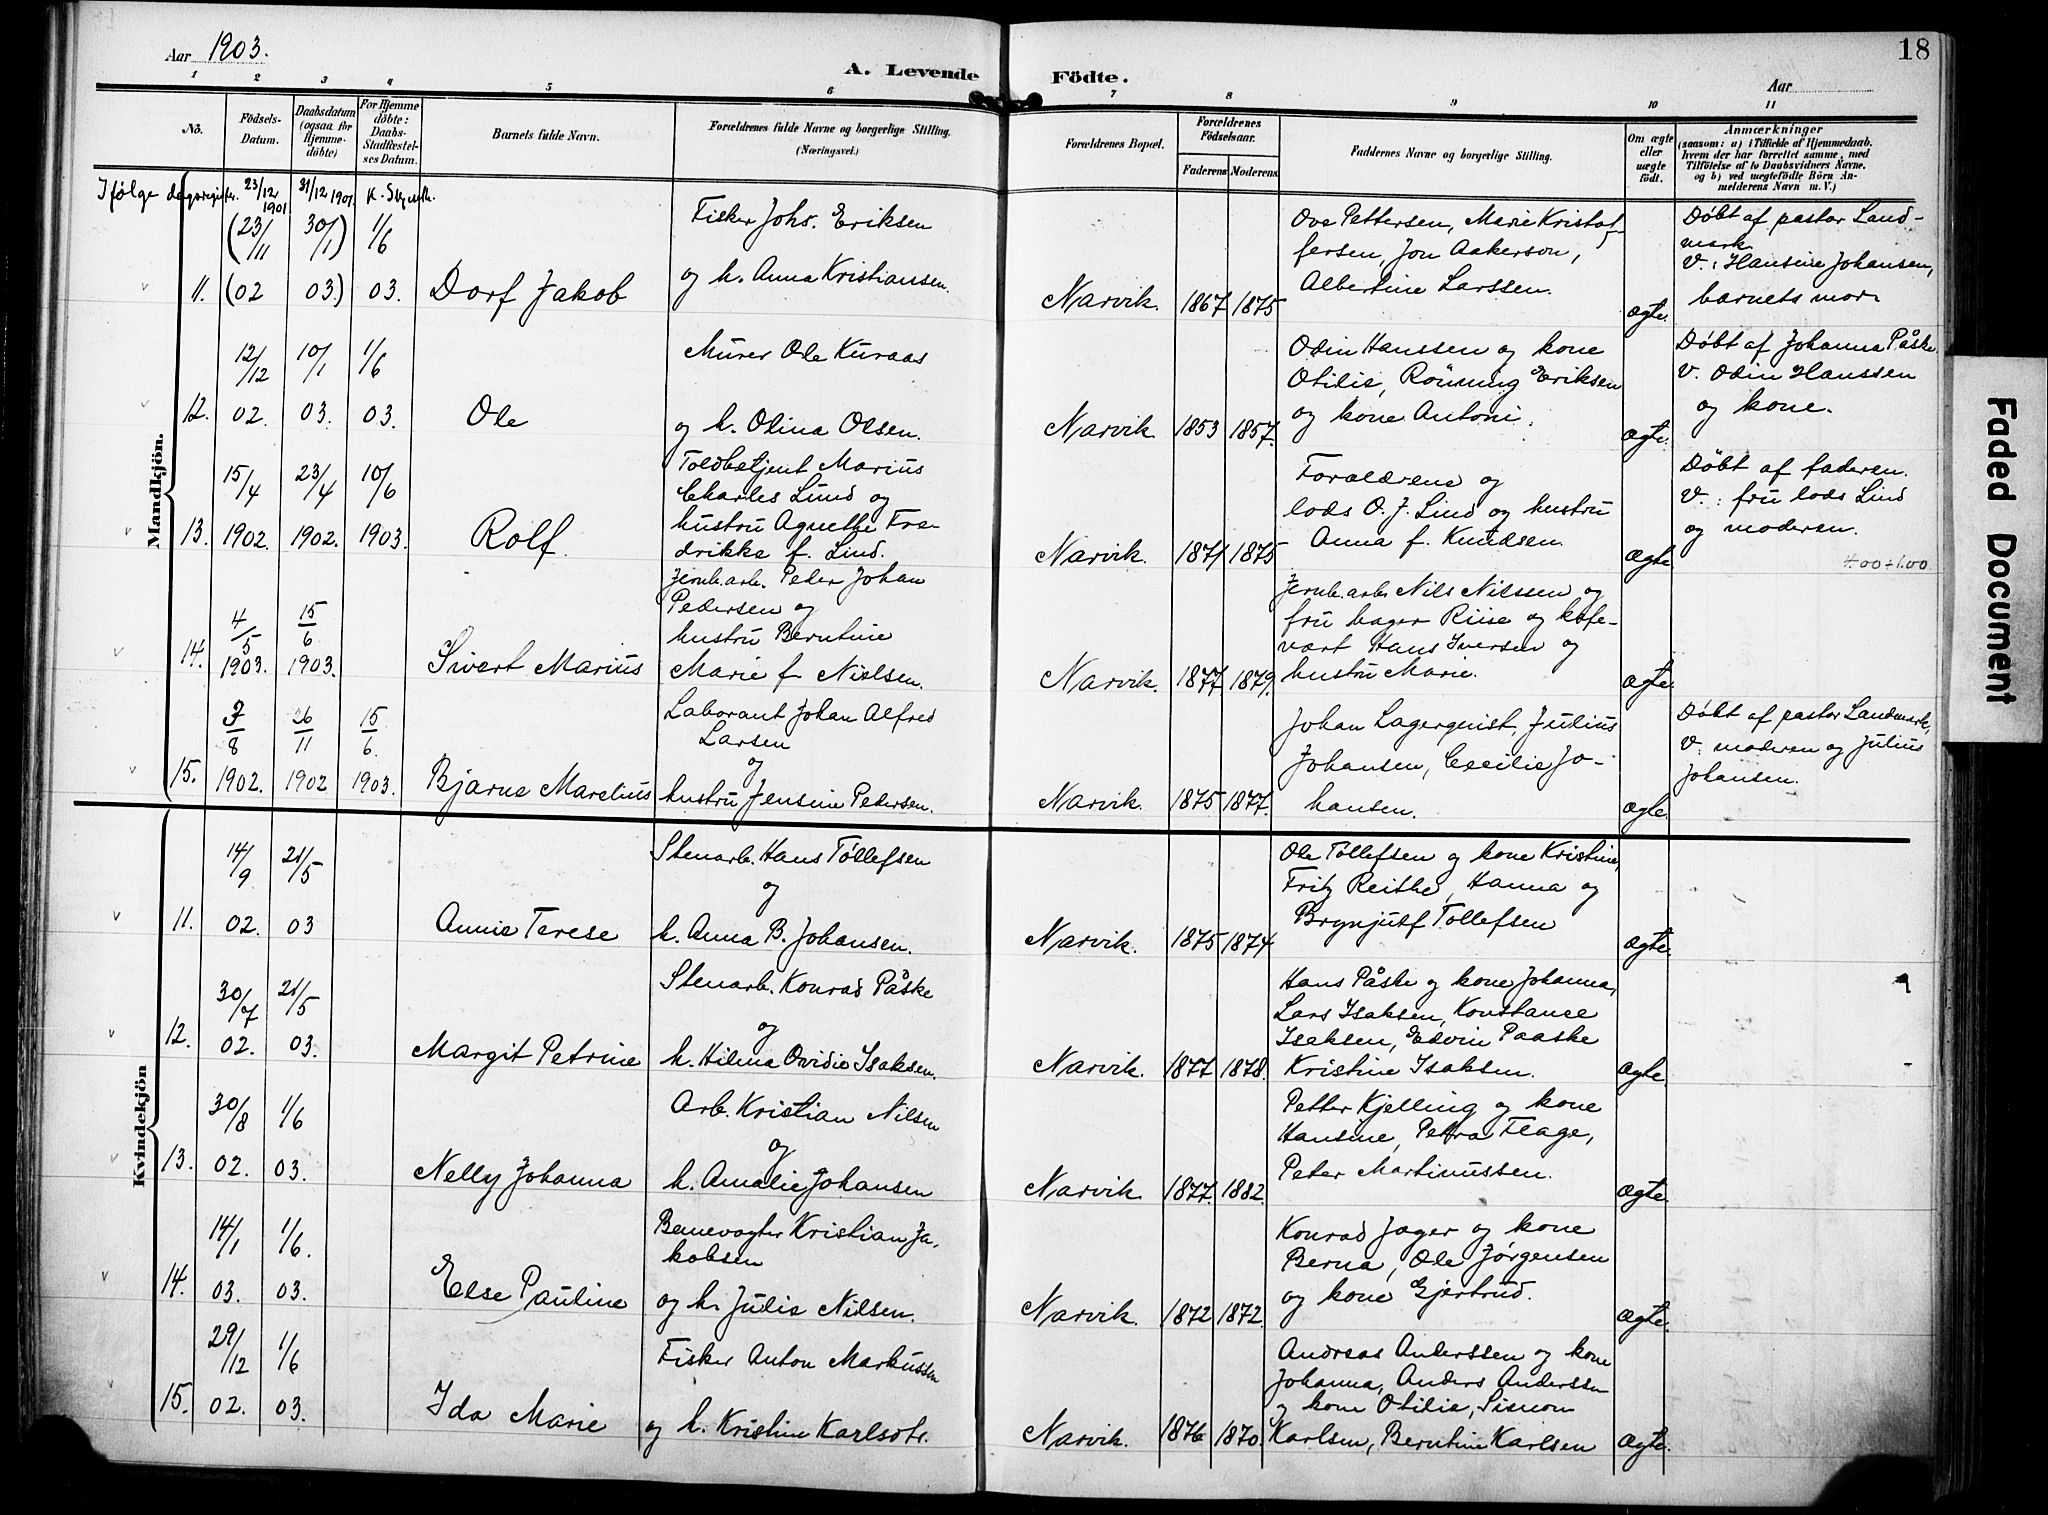 Aar 1903.
A. Levende Födte.
Aar
18
1 2 3 4 5 6 7 8 9 10 11
No.
Födsels-Datum.
Daabsdatum (ogsaa for Hjemme-döbte)
For Hjemme döbte: Daabs-Stadfæstel-ses Datum.
Barnets fulde Navn.
Forældrenes fulde Navne og borgerlige Stilling.
(Næringsvei.)
Forældrenes Bopæl.
Forældrenes Födselsaar.
Faderens Moderens
Faddernes Navne og borgerlige Stilling.
Om ægte eller uægte födt.
Anmærkninger
(saasom: a) i Tilfælde af Hjemmedaab.
hvem der har forrettet samme, med
Tilföielse af to Daabsvidners Navne.
og b) ved uægtefödte Börn An-
melderens Navn m. V.)
Mandkjön.
Ifølge dagsregistr. 23/12 1901 31/12 1901
11. (23/11 02 30/1 03.) 1/6 03.
Dorf Jakob
Fisker Johs. Eriksen
og h. Anna Kristiansen.
Narvik. 1867 1875
Ove Pettersen, Marie Kristof-
fersen, Jon Aakerson,
Albertine Larssen.
ægte.
Døbt af pastor Land-
mark
V.: Hansine Johansen,
barnets mor.
12. 12/12 02. 10/1 03. 1/6 03.
Ole
Murer Ole Kuraas
og h. Olina Olsen.
Narvik. 1853 1857.
Odin Hanssen og kone
Otilie, Rönning Eriksen
og kone Antoni.
ægte.
Døbt af Johanna Påske.
V. Odin Hanssen
og kone.
13. 15/4 1902. 23/4 1902. 10/6 1903.
Rolf.
Toldbetjent Marius
Charles Lund og
hustru Agnethe Fre-
drikke f. Lind.
Narvik. 1871 1875
Forældrene og
lods O. J. Lind og hustru
Anna f. Knudsen.
ægte
Døbt af faderen.
V.: fru lods Lind
og moderen.
4.00+1.00
14. 4/5 1903. 15/6 1903.
Sivert Marius
Jernb.arb. Peder Johan
Pedersen og
hustru Berntine
Marie f. Nielsen.
Narvik. 1877 1879.
Jernb.arb. Nils Nilssen og
fru bager Riise og kafe-
vært Hans Iversen og
hustru Marie.
ægte.
15. /8 1902. 26/11 1902 15/6. 1903.
Bjarne Marelius
Laborant Johan Alfred
Larsen
og
hustru Jensine Pedersen.
Narvik. 1875 1877.
Johan Lagerquist, Julius
Johansen, Cecilie Jo-
hansen.
ægte.
Døbt af pastor Landmark,
V. moderen og Julius
Johansen.
Kvindekjön
11. 14/9 02. 21/5 03
Annie Terese
Stenarb. Hans Tollefsen
og
h. Anna B. Johansen.
Narvik. 1875 1874
Ole Tollefsen og kone Kristine,
Fritz Reithe, Hanna og
Brynjulf Tollefsen
ægte.
12. 30/7 02. 21/5 03.
Margit Petrine
Stenarb. Konrad Påske
og
h. Hilma Ovidie Isaksen.
Narvik. 1877 1878.
Hans Påske og kone Johanna,
Lars Isaksen, Konstance
Isaksen, Edvin Paaske
Kristine Isaksen.
ægte
13. 30/8 02. 1/6 03.
Nelly Johanna
Arb. Kristian Nilsen
og
h. Amalie Johansen
Narvik. 1877. 1882.
Petter Kjelling og kone
Hansine, Petra Flage,
Peter Martinussen.
ægte.
14. 14/1 03. 1/6. 03.
Else Pauline
Banevogter Kristian Ja-
kobsen
og h. Julie Nilsen.
Narvik. 1872 1872.
Konrad Jager og kone
Berna, Ole Jørgensen
og kone Gjertrud.
ægte.
15. 29/12 02. 1/6 03.
Ida Marie
Fisker Anton Markussen
og h. Kristine Karlsdtr.
Narvik. 1876 1870.
Andreas Anderssen og kone
Johanna, Anders Anderssen
og kone Otilie, Simon
Karlsen, Berntine Karlsen
ægte.
Faded Document